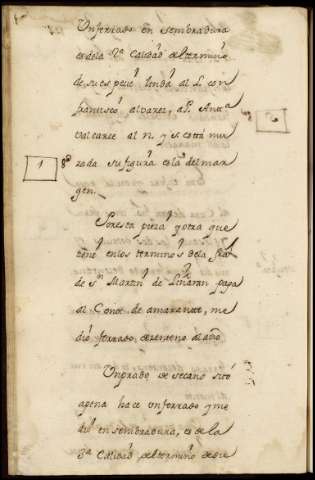 Un ferrado en sembradura
es de la 2ª Calidad del termino
de su especie linda al L. con
franᶜisco alvarez, al P. Antᵃ
valcarce al n. y s. cotta mu
1 8º rada su figura es la del mar
gen.
Por esta pieza y otra que
tiene en los terminos de la fra
de Sⁿ Martin de paga
al Conde de amarante, me
dio ferrado de zenteno al año
Un prado de secano sito
apena hace un ferrado y me
dio en sembradura, es de la
3ª Calidad del termino de su